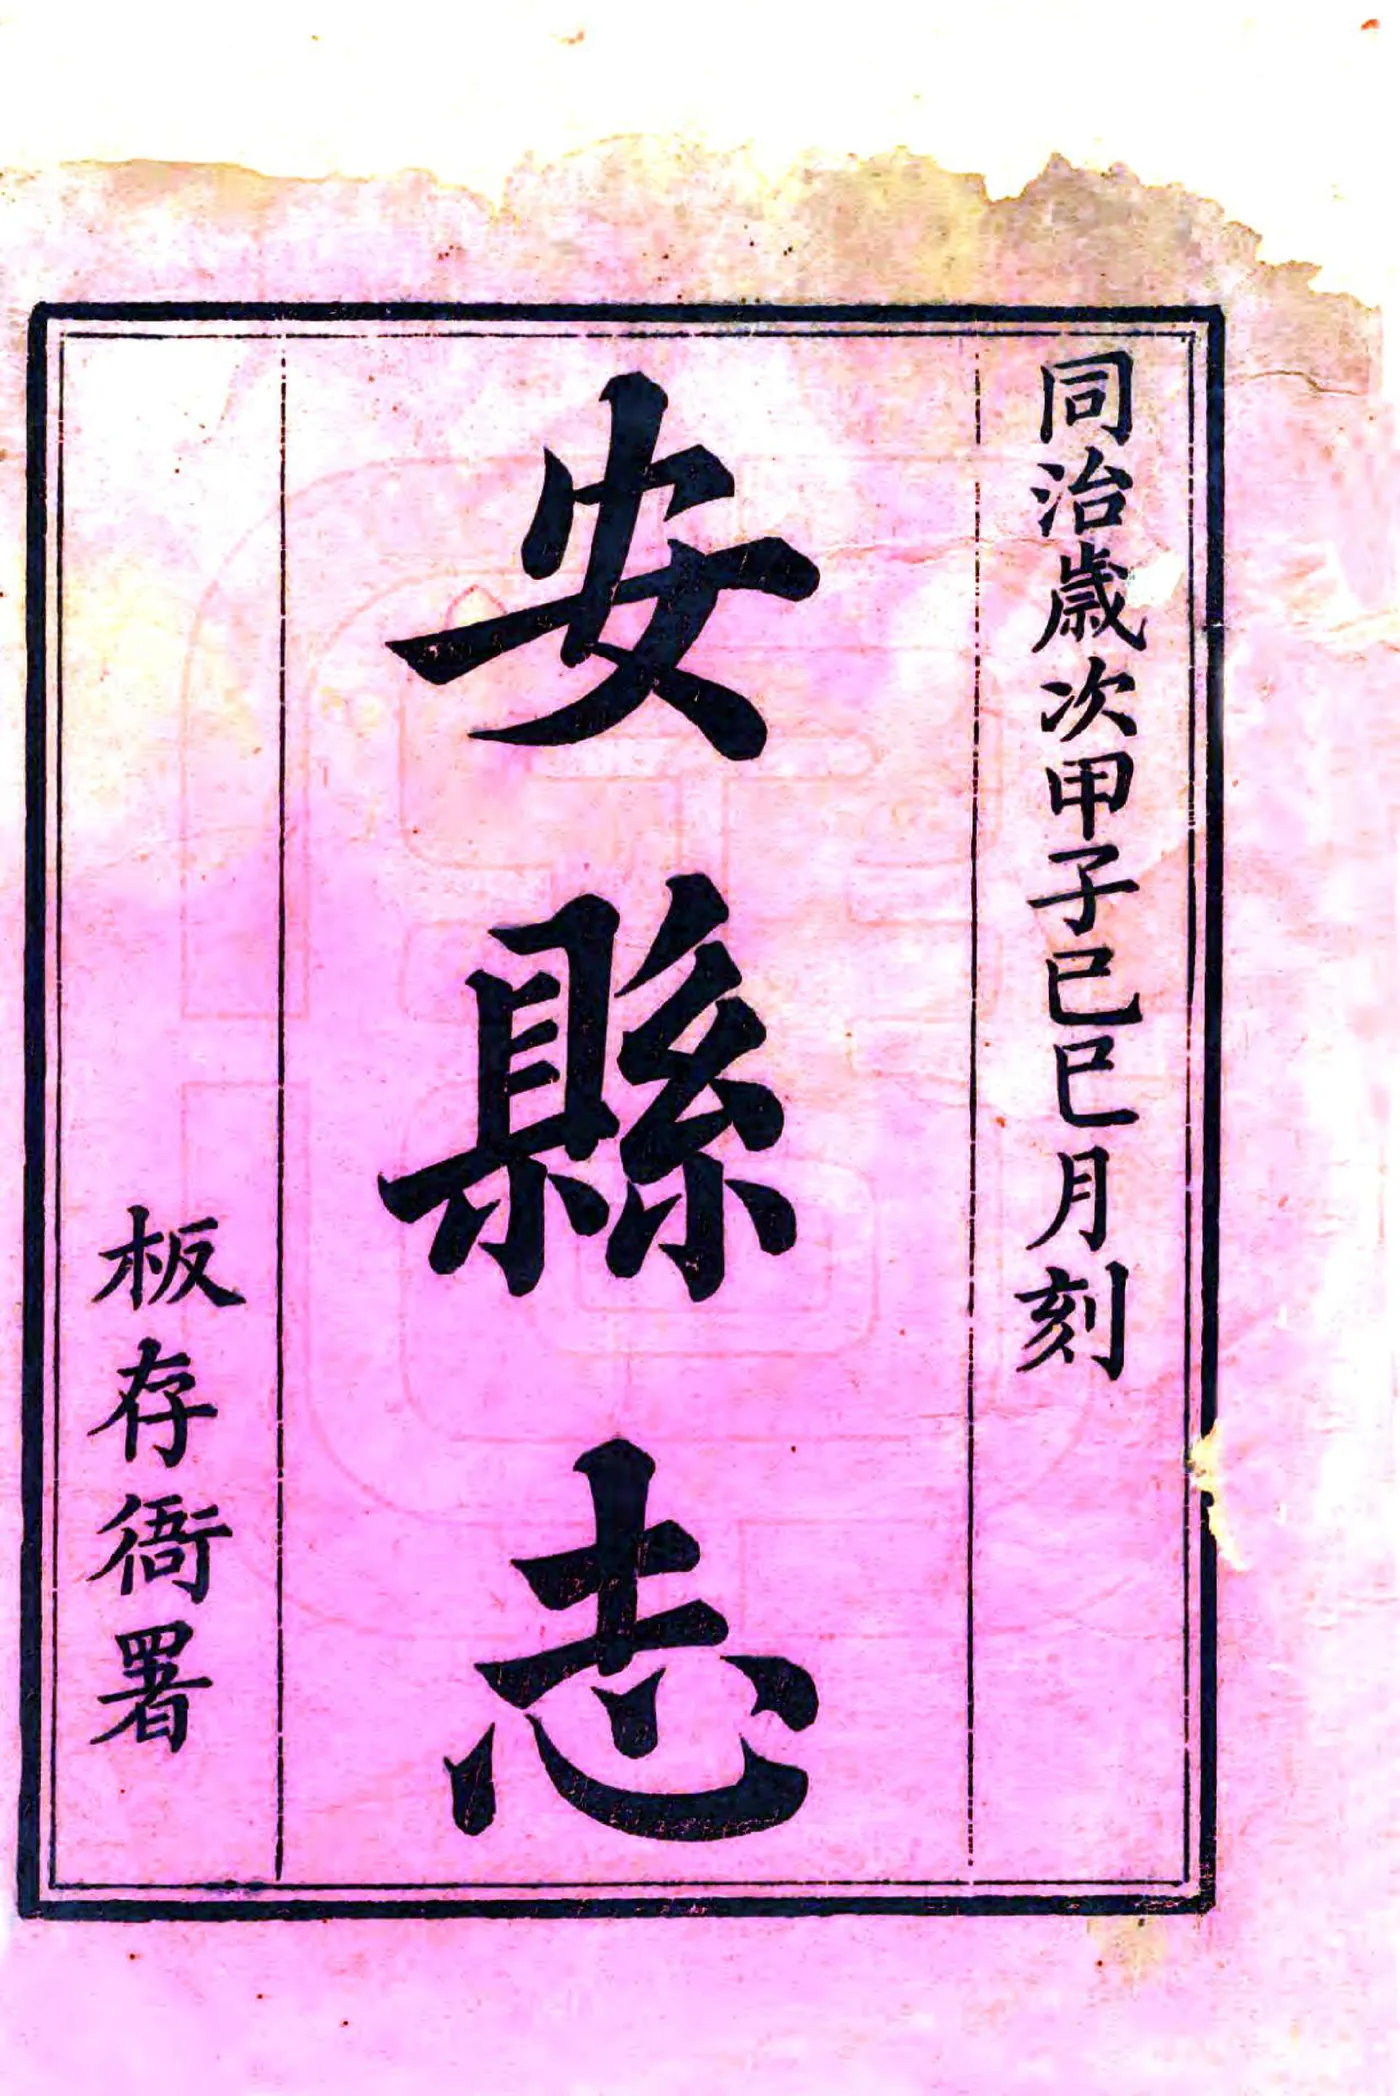 同治歲次甲子已巳月刻
安縣志
板存衙署